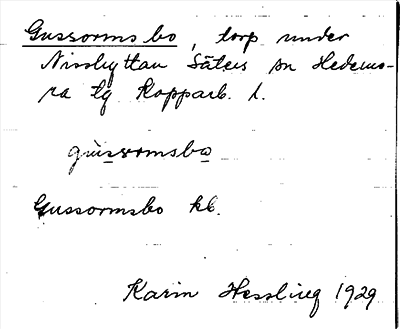 Gussormsbo, torp under
Nisshyttan Säters sn Hedemo-
ra tg Kopparb. l.
gussormsbo
Gussormsbo kb.
Karin Hessling 1929